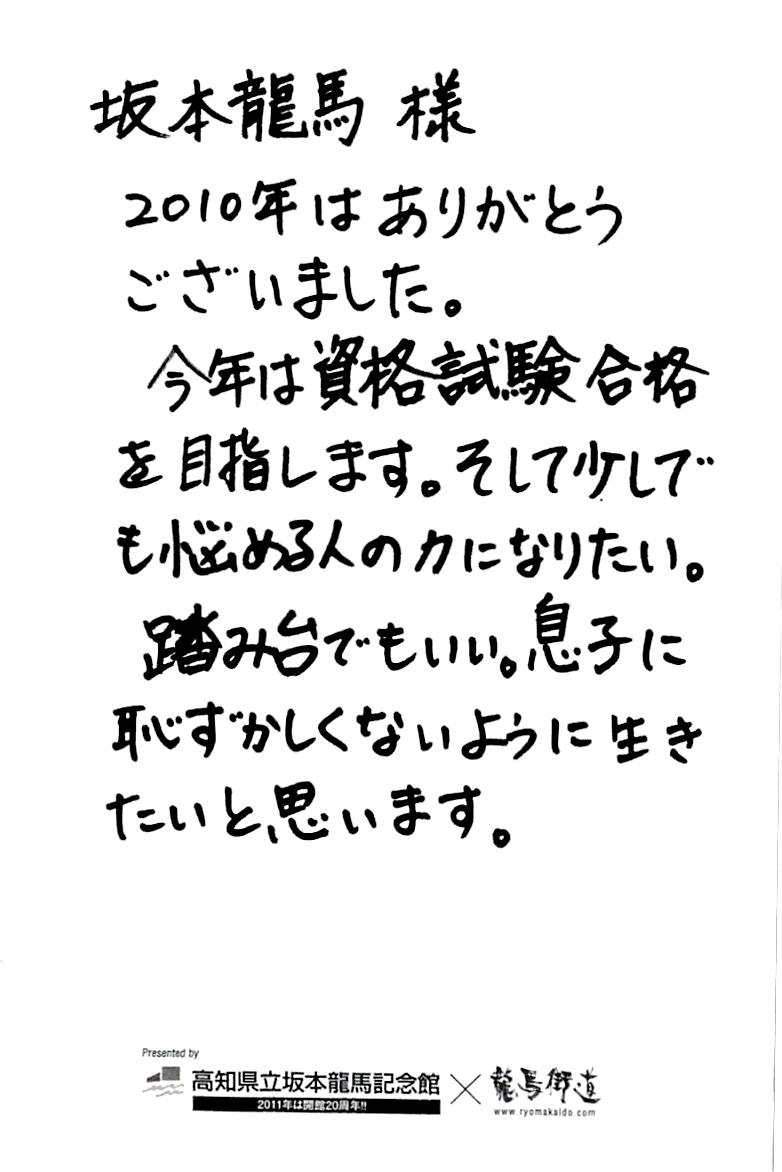 坂本龍馬 様
2010年は ありがとう
ございました。
今年は資格試験合格
を目指します。そして少しで
も悩める人の力になりたい。
踏み台でもいい。息子に
恥ずかしくないように生き
たいと思います。
Presented by
高知県立坂本龍馬記念館 × 龍馬街道
2011年は開館20周年!! www.ryomakaido.com